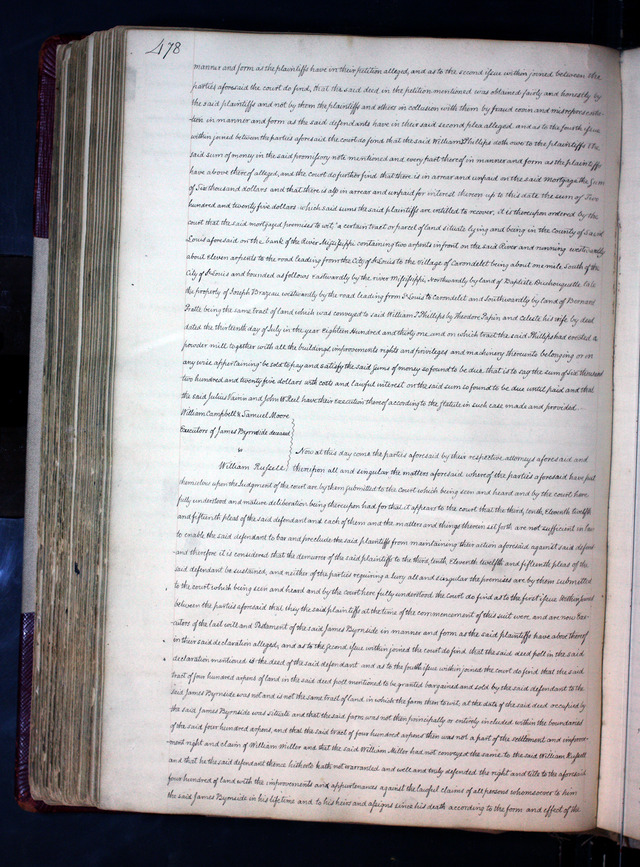 478
manner and form as the plaintiffs have in their petition alleged, and as to the second issue within joined between the
parties aforesaid the court do find, that the said deed in the petition mentioned was obtained fairly and honestly by
the said plaintiffs and not by them the plaintiffs and others in collusion with them by fraud covin and misrepresenta-
tion in manner and form as the said defendants have in their said second plea alleged. and as to the fourth issue
within joined between the parties aforesaid the court do find that the said William Phillips doth owe to the plaintiffs the
said sum of money in the said promissory note mentioned and every part thereof in manner and form as the plaintiffs
have above thereof alleged, and the court do further find that there is in arrear and unpaid on the said Mortgage the sum
of Six thousand dollars and that there is also in arrear and unpaid for interest thereon up to this date the sum of Two
hundred and twenty five dollars which said sums the said plaintiffs are entitled to recover, it is thereupon ordered by the
court that the said mortgaged premises to wit, "a certain tract or parcel of land situate lying and being in the County of Saint
Louis aforesaid on the bank of the River Mississippi containing two arpents in front on the said River and running westwardly
about eleven arpents to the road leading from the City of St Louis to the Village of Carondelet being about one mile South of the
City of St Louis and bounded as follows Eastwardly by the river Mississippi, Northwardly by land of Baptiste Duchouquette, late
the property of Joseph Brazeau westwardly by the road leading from St Louis to Carondelet and Southwardly by land of Bernard
Pratte being the same tract of land which was conveyed to said William T Phillips by Theodore Papin and Celeste his wife by deed
dated the thirteenth day of July in the year Eighteen Hundred and thirty one, and on which tract the said Phillips has erected a
powder mill together with all the buildings improvements rights and privileges and machinery thereunto belonging or in
any wise appertaining" be sold to pay and satisfy the said sums of money so found to be due, that is to say the sum of six thousand
two hundred and twenty five dollars with costs and lawful interest on the said sum so found to be due until paid and that
the said Julius and John W Reel have their execution thereof according to the statute in such case made and provided.
William Campbell & Samuel Moore
Executors of James Byrnside deceased
vs
William Russell
Now at this day come the parties aforesaid by their respective attorneys aforesaid and
thereupon all and singular the matters aforesaid whereof the parties aforesaid have put
themselves upon the Judgment of the court are by them submitted to the Court which being seen and heard and by the court here
fully understood and mature deliberation being thereupon had for that it appears to the court that the third, tenth, eleventh twelfth
and fifteenth pleas of the said defendant and each of them and the matters and things therein set forth are not sufficient in law
to enable the said defendant to bar and preclude the said plaintiffs from maintaining their action aforesaid against said defend-
and therefore it is considered that the demurrer of the said plaintiffs to the third, tenth, Eleventh twelfth and fifteenth pleas of the
said defendant be sustained, and neither of the parties requiring a Jury all and singular the premises are by them submitted
to the court which being seen and heard and by the court here fully understood the court do find as to the first issue Within joined
between the parties aforesaid that they the said plaintiffs at the time of the commencement of this suit were and are now Exe-
cutors of the last will and Testament of the said James Byrnside in manner and form as the said plaintiffs have above thereof
in their said declaration alleged, and as to the second issue within joined the court do find that the said deed poll in the said
declaration mentioned is the deed of the said defendant and as to the fourth issue within joined the court do find that the said
tract of four hundred arpens of land in the said deed poll mentioned to be granted bargained and sold by the said defendant to the
said James Byrnside was not and is not the same tract of land, in which the farm then to wit, at the date of the said deed occupied by
the said James Byrnside was situate and that the said farm was not then principally or entirely included within the boundaries
of the said four hundred arpens, and that the said tract of four hundred arpens then was not a part of the settlement and improve-
ment right and claim of William Miller and that the said William Miller had not conveyed the same to the said William Russell
and that he the said defendant thence hitherto hath not warranted and well and truly defended the right and title to the aforesaid
four hundred of land with the improvements and appurtenances against the lawful claims of all persons whomsoever to him
the said James Byrnside in his lifetime and to his heirs and assigns since his death according to the form and effect of the